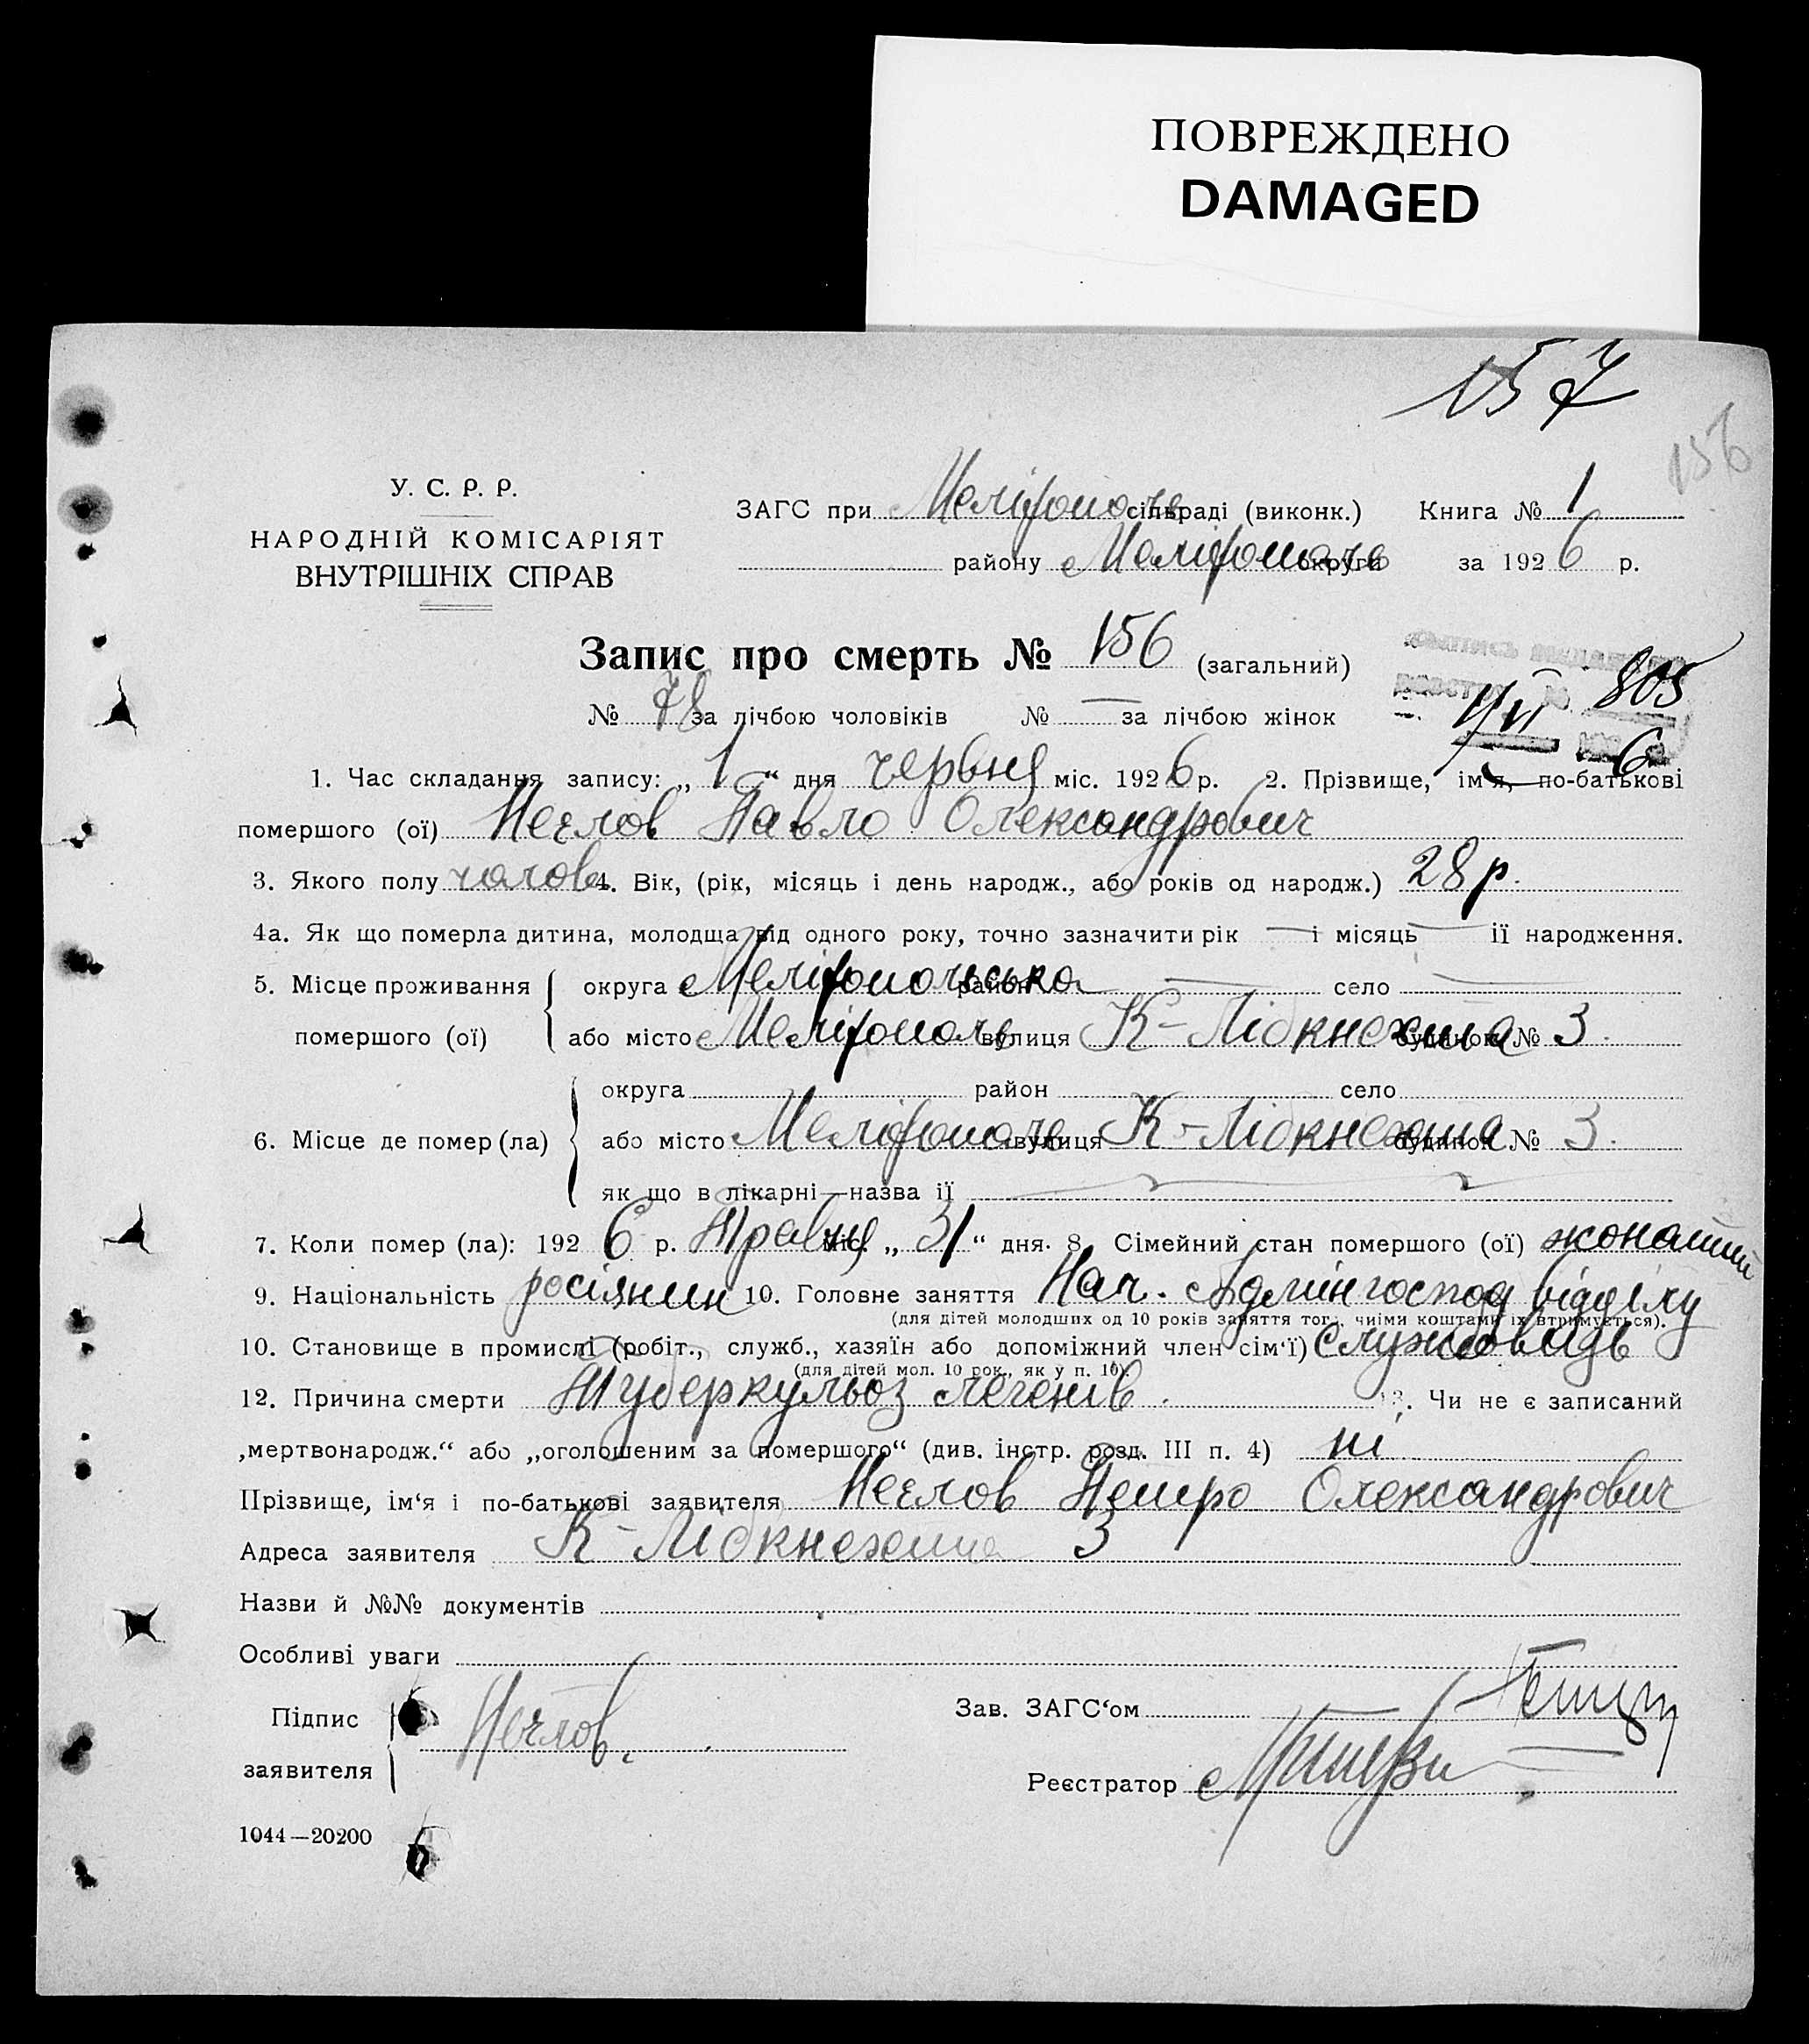 ПОВРЕЖДЕНО
DAMAGED
157
156
У. С. Р. Р.
НАРОДНІЙ КОМІСАРІЯТ
ВНУТРІШНІХ СПРАВ
ЗАГС при Мелітополь сільраді (виконк.) Книга № 1
району Мелітополь округи за 1926 р.
Запис про смерть № 156 (загальний)
№ 78 за лічбою чоловіків № — за лічбою жінок
805
1. Час складання запису: „1“ дня червня міс. 1926 р. 2. Прізвище, ім'я, по-батькові
помершого (ої) Неглов Павло Олександрович
3. Якого полу чолов. 4. Вік, (рік, місяць і день народж., або років од народж.) 28 р.
4а. Як що померла дитина, молодща від одного року, точно зазначити рік — і місяць — її народження.
5. Місце проживання помершого (ої) округа Мелітопольська район — село —
або місто Мелітополь вулиця К-Лібкнехта будинок № 3.
6. Місце де помер (ла) округа район село
або місто Мелітополь вулиця К-Лібкнехта будинок № 3.
як що в лікарні—назва її
7. Коли помер (ла): 1926 р. Травня міс. „31“ дня. 8. Сімейний стан помершого (ої) жонатий
9. Національність росіянин 10. Головне заняття Нач. Адмінгоспод відділу
(для дітей молодших од 10 років заняття тог., чиїми коштами їх втримується).
10. Становище в промислі (робіт., служб., хазяїн або допоміжний член сім'ї) службовець
(для дітей мол. 10 рок., як у п. 10).
12. Причина смерти Туберкульоз легенів. 13. Чи не є записаний
„мертвонародж.“ або „оголошеним за помершого“ (див. інстр. розд. III п. 4) ні
Прізвище, ім'я і по-батькові заявителя Неглов Петро Олександрович
Адреса заявителя К-Лібкнехта 3
Назви й №№ документів
Особливі уваги
Підпис заявителя Неглов.
Зав. ЗАГС'ом
Реєстратор
1044—20200